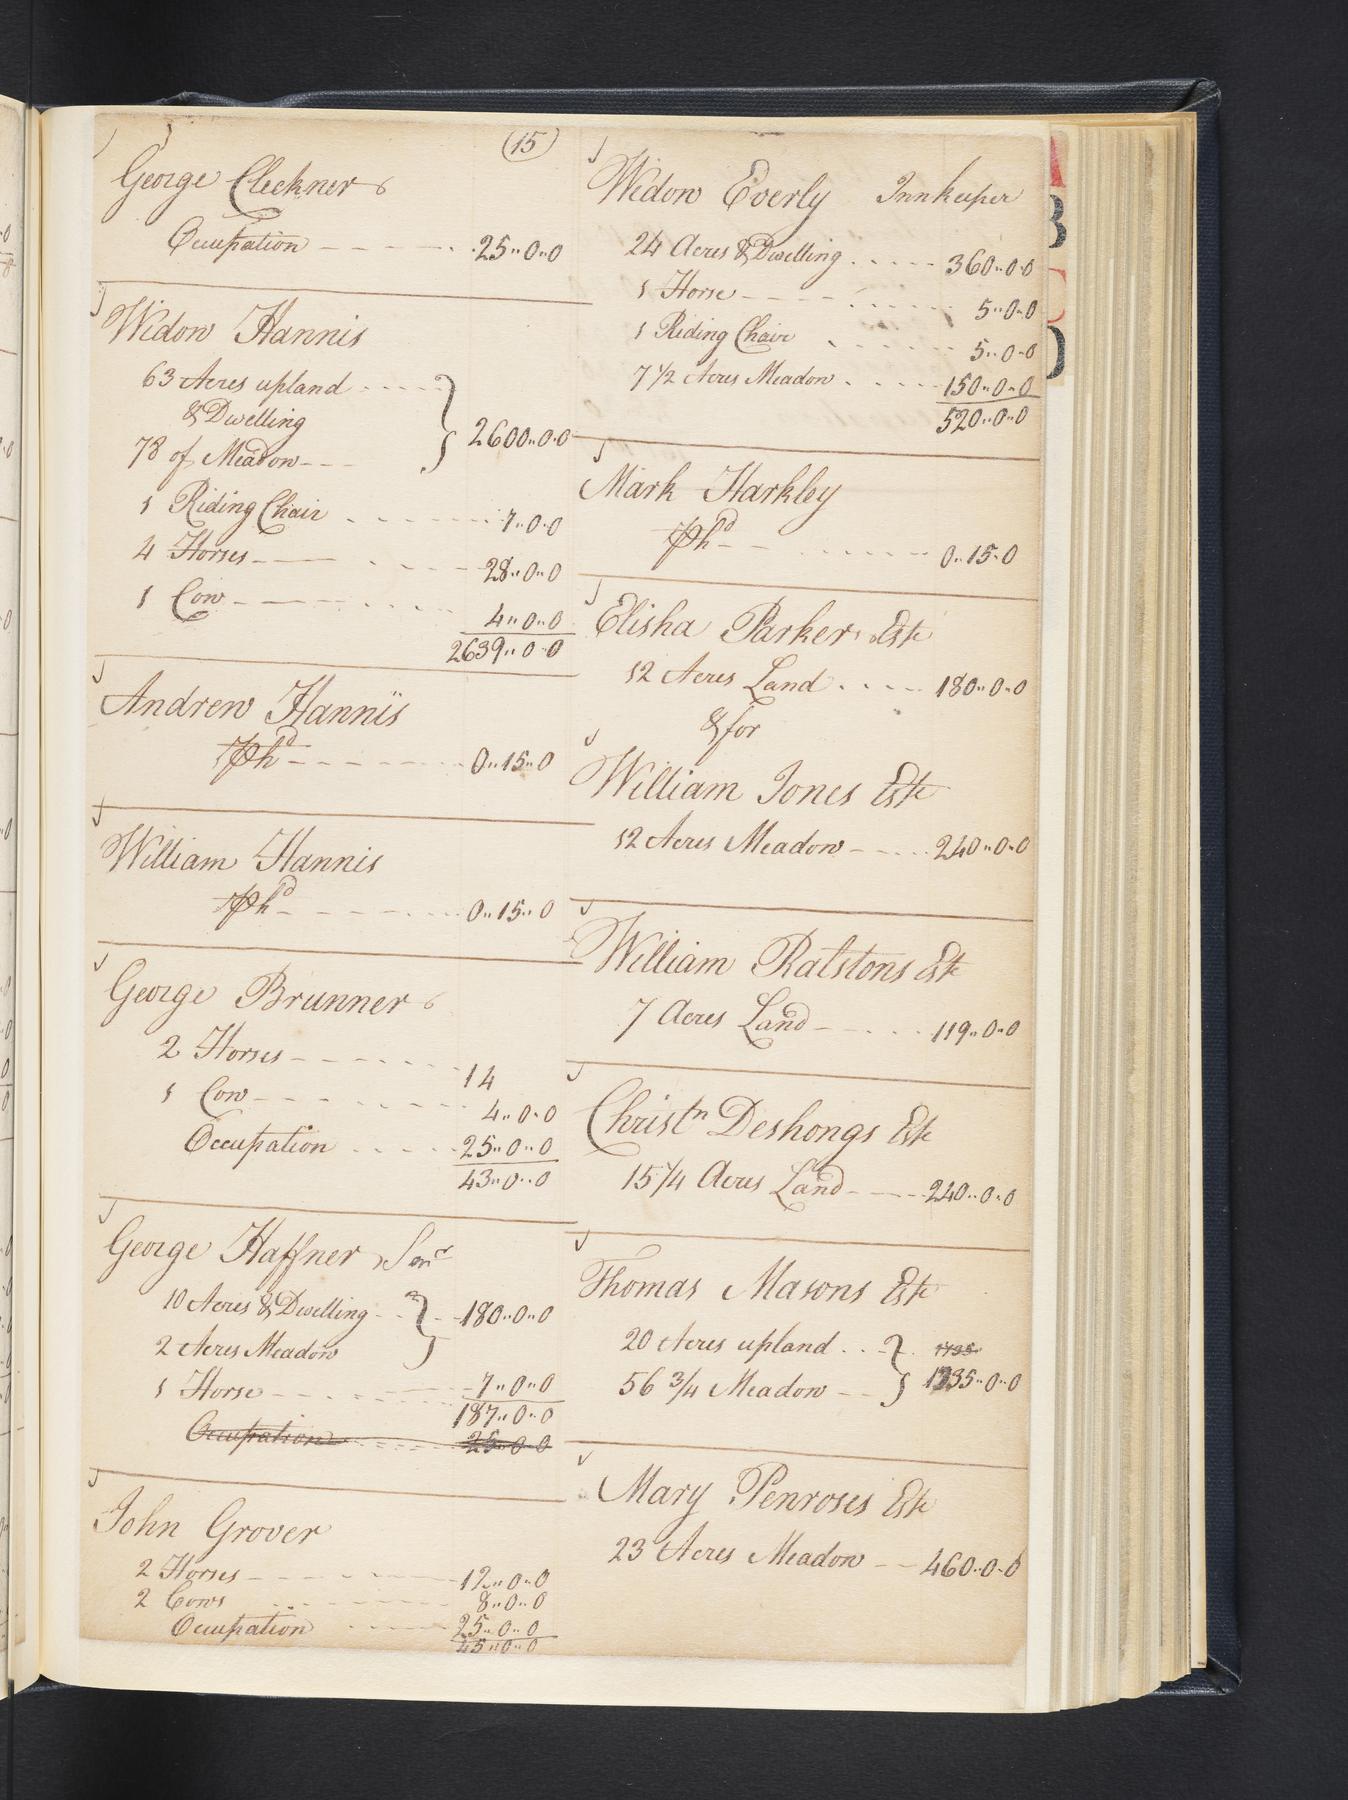 (15)
George Cleckner
Occupation 25..0..0
Widow Hannis
63 Acres upland
& Dwelling
78 of Meadow 2600..0..0
1 Riding Chair 7..0..0
4 Horses 28..0..0
1 Cow 4..0..0
2639..0..0
Andrew Hannis
℔ hd 0..15..0
William Hannis
℔ hd 0..15..0
George Brunner
2 Horses 14
1 Cow 4..0..0
Occupation 25..0..0
43..0..0
George Haffner Senr
10 Acres & Dwelling 180..0..0
2 Acres Meadow
1 Horse 7..0..0
187..0..0
Occupation 25..0..0
John Grover
2 Horses 12..0..0
2 Cows 8..0..0
Occupation 25..0..0
45..0..0
Widow Everly Innkeeper
24 Acres & Dwelling 360..0..0
1 Horse 5..0..0
1 Riding Chair 5..0..0
7 1/2 Acres Meadow 150..0..0
520..0..0
Mark Harkley
℔ hd 0..15..0
Elisha Parker Este
12 Acres Land 180..0..0
& for
William Jones Este
12 Acres Meadow 240..0..0
William Ralstons Este
7 Acres Land 119..0..0
Christn Deshongs Este
15 1/4 Acres Land 240..0..0
Thomas Masons Este
20 Acres upland
56 3/4 Meadow 1335..0..0
Mary Penroses Este
23 Acres Meadow 460..0..0
B
C
D